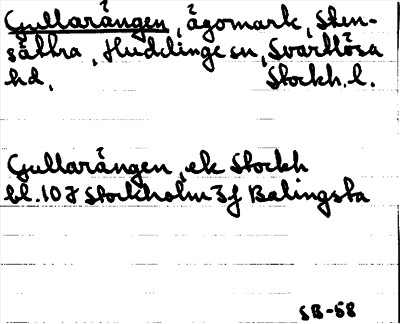 Gullarängen, ägomark, Sten-
sättra, Huddinge sn, Svartlösa
hd, Stockh. l.
Gullarängen, ek Stockh
bl. 10 I Stockholm 3f Balingsta
SB-58